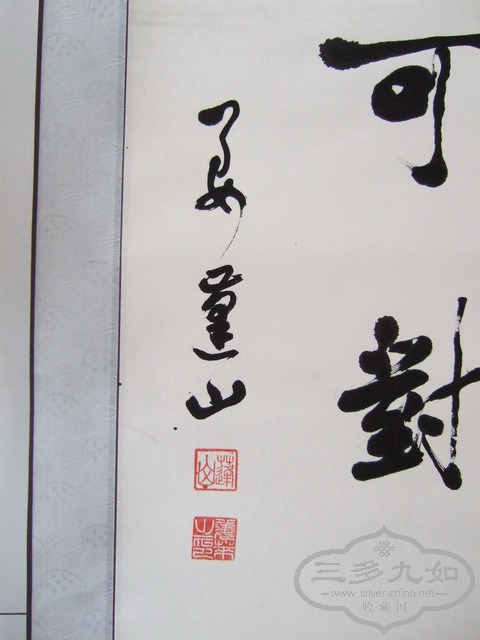 可對
蓬山
蓬山
三多九如
www.silver-china.net
收·藏·网